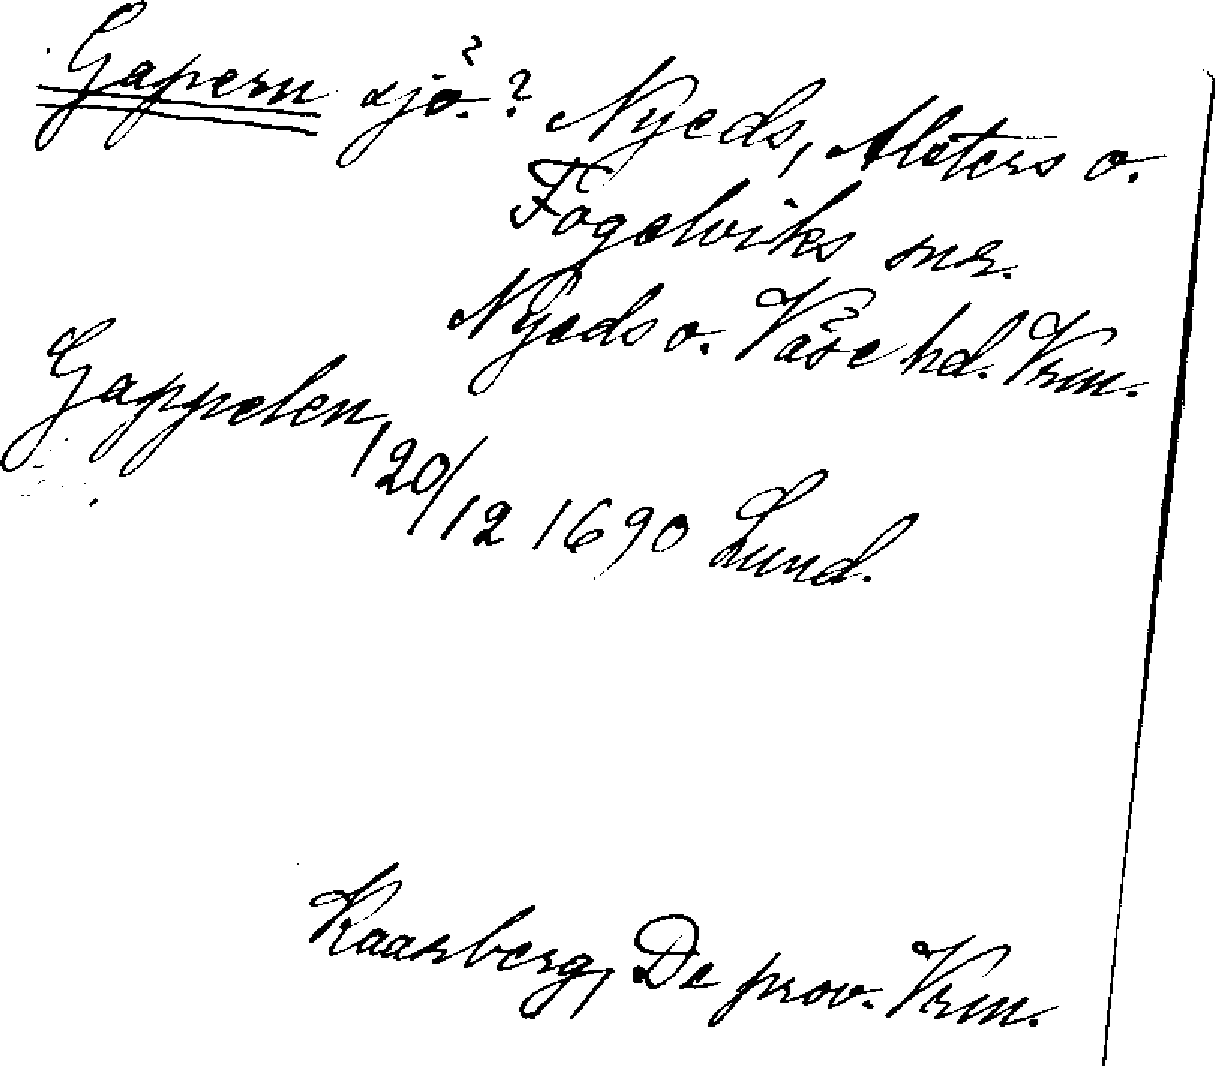 Gapern sjö? ? Nyeds, Alsters o.
Fågelviks snr.
Nyeds o. Väse hd. Vrm.
Gappelen, 20/12 1690 Lund.
Kaarberg, De prov. Vrm.